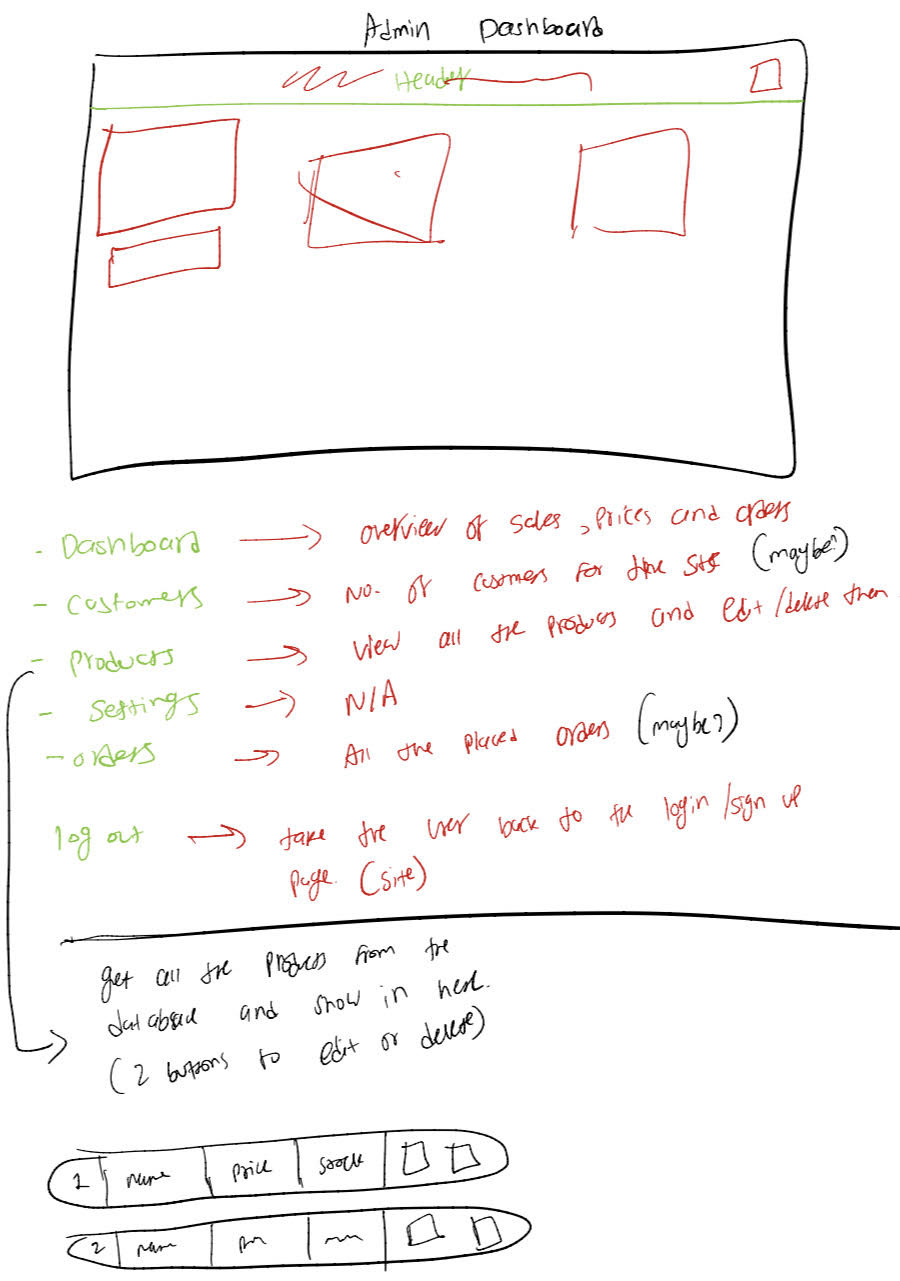 Admin Dashboard
Header
- Dashboard → overview of sales, prices and orders
- Customers → No. of customers for the site (maybe?)
- Products → view all the products and edit/delete them.
- Settings → N/A
- orders → All the placed orders (maybe?)
log out → take the user back to the login/sign up
page. (site)
get all the products from the
database and show in here.
(2 buttons to edit or delete)
1 name price stock
2 name